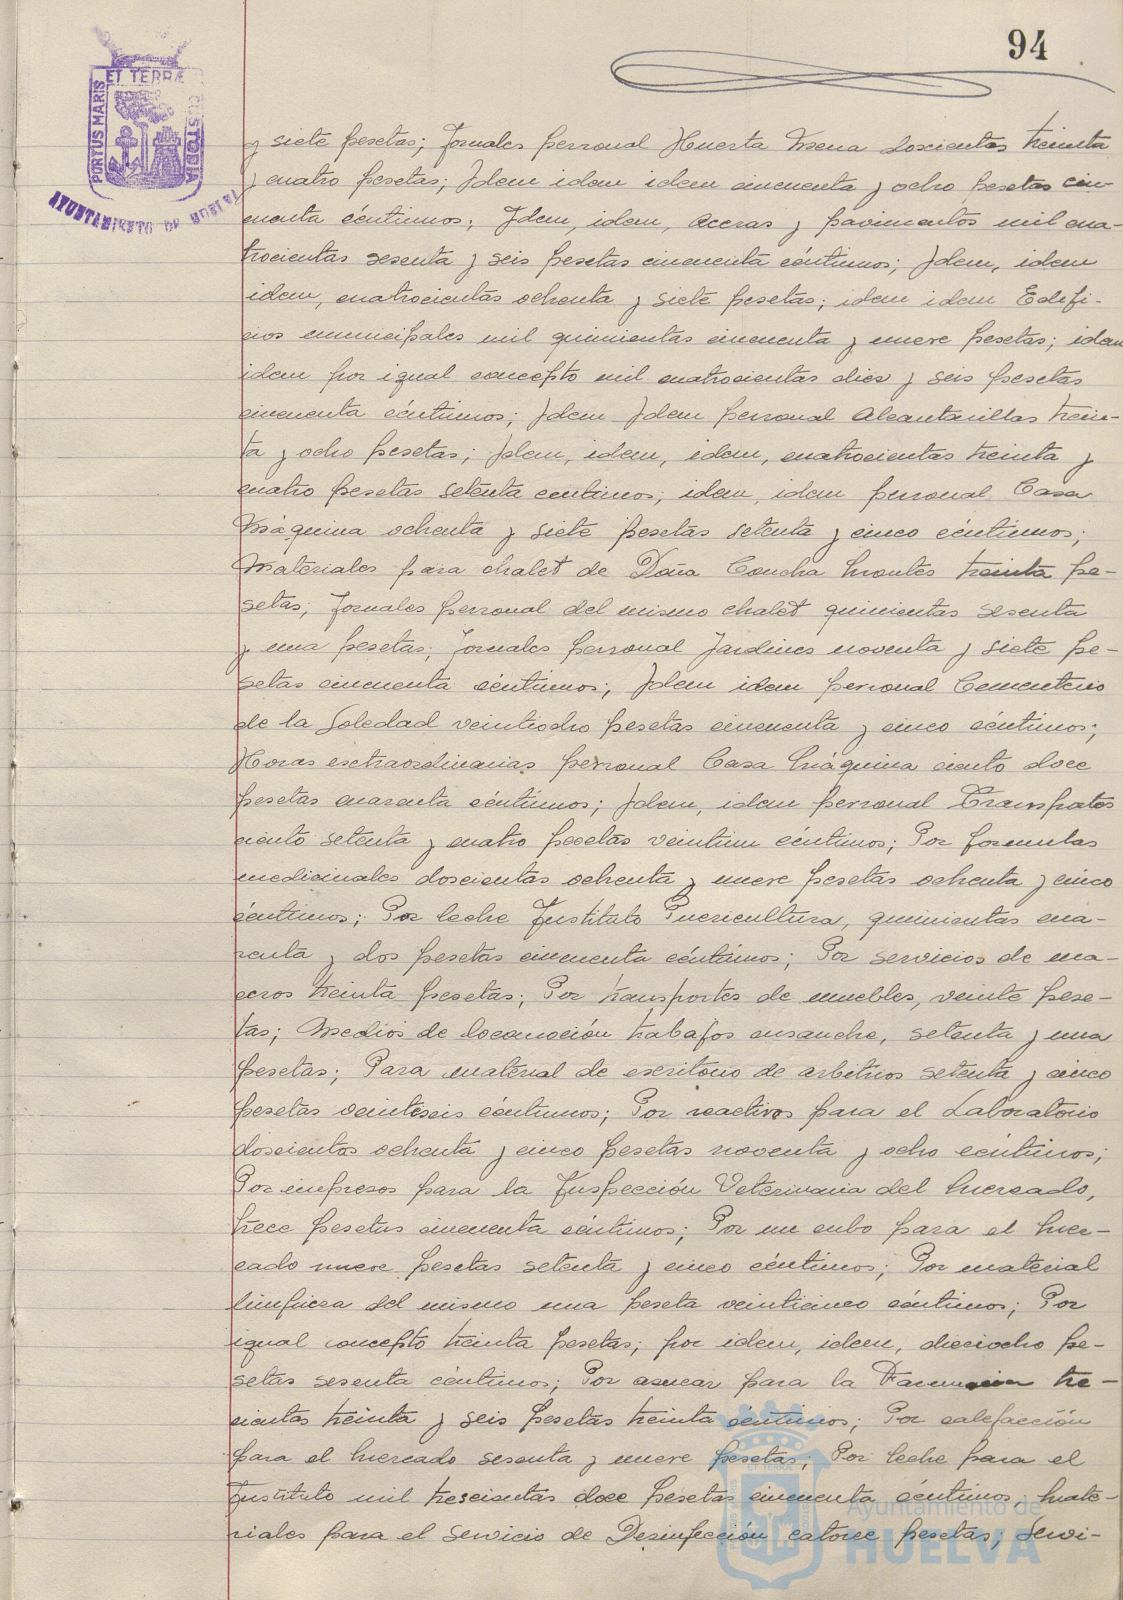 94
PORTUS MARIS ET TERRÆ CUSTODIA
AYUNTAMIENTO DE HUELVA
y siete pesetas; Jornales personal Huerta Mena doscientas treinta
y cuatro pesetas; Idem idem idem cincuenta y ocho pesetas cin-
cuenta céntimos; Idem, idem, Aceras y pavimentos mil cua-
trocientas sesenta y seis pesetas cincuenta céntimos; Idem, idem
idem, cuatrocientas ochenta y siete pesetas; idem idem Edifi-
cios municipales mil quinientas cincuenta y nueve pesetas; idem
idem por igual concepto mil cuatrocientas diez y seis pesetas
cincuenta céntimos; Idem Idem personal Alcantarillas trein-
ta y ocho pesetas; Idem, idem, idem, cuatrocientas treinta y
cuatro pesetas setenta centimos; idem, idem personal Casa
Máquina ochenta y siete pesetas setenta y cinco céntimos;
Materiales para chalet de Doña Concha Montes treinta pe-
setas; Jornales personal del mismo chalet quinientas sesenta
y una pesetas; Jornales personal Jardines noventa y siete pe-
setas cincuenta céntimos; Idem idem personal Cementerio
de la Soledad veintiocho pesetas cincuenta y cinco céntimos;
Horas extraordinarias personal Casa Máquina ciento doce
pesetas cuarenta céntimos; Idem, idem personal Transportes
ciento setenta y cuatro pesetas veintiun céntimos; Por formulas
medicinales doscientas ochenta y nueve pesetas ochenta y cinco
céntimos; Por leche Instituto Puericultura, quinientas cua-
renta y dos pesetas cincuenta céntimos; Por servicios de ma-
ceros treinta pesetas; Por transportes de muebles, veinte pese-
tas; Medios de locomoción trabajos ensanche, setenta y una
pesetas; Para material de escritorio de arbitrios setenta y cinco
pesetas veintiseis céntimos; Por reactivos para el Laboratorio
doscientos ochenta y cinco pesetas noventa y ocho céntimos;
Por impresos para la Inspección Veterinaria del Mercado,
trece pesetas cincuenta céntimos; Por un cubo para el Mer-
cado nueve pesetas setenta y cinco céntimos; Por material
limpieza del mismo una peseta veinticinco céntimos; Por
igual concepto treinta pesetas; por idem, idem, dieciocho pe-
setas sesenta céntimos; Por azucar para la Farmacia tre-
cientas treinta y seis pesetas treinta céntimos; Por calefacción
para el Mercado sesenta y nueve pesetas; Por leche para el
Instituto mil trescientas doce pesetas cincuenta céntimos, Mate-
riales para el servicio de Desinfección catorce pesetas; Servi-
Ayuntamiento de
HUELVA